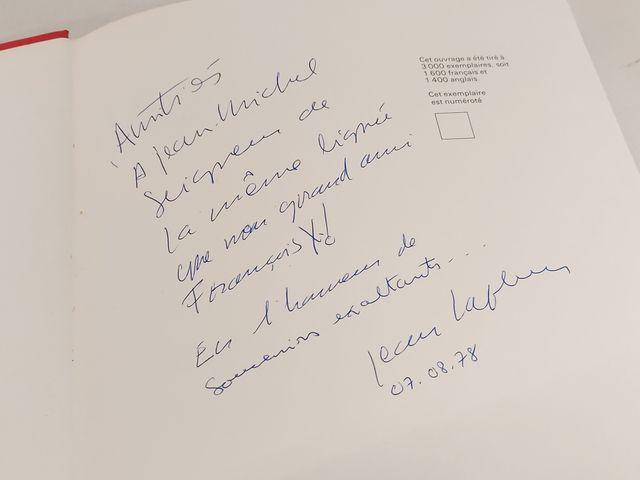 Amitiés
A Jean-Michel
Seigneur de
la même lignée
que mon grand ami
François X!
En l'honneur de
Souvenirs exaltants....
Jean
07.08.78
Cet ouvrage a été tiré à
3 000 exemplaires, soit
1 600 français et
1 400 anglais.
Cet exemplaire
est numéroté